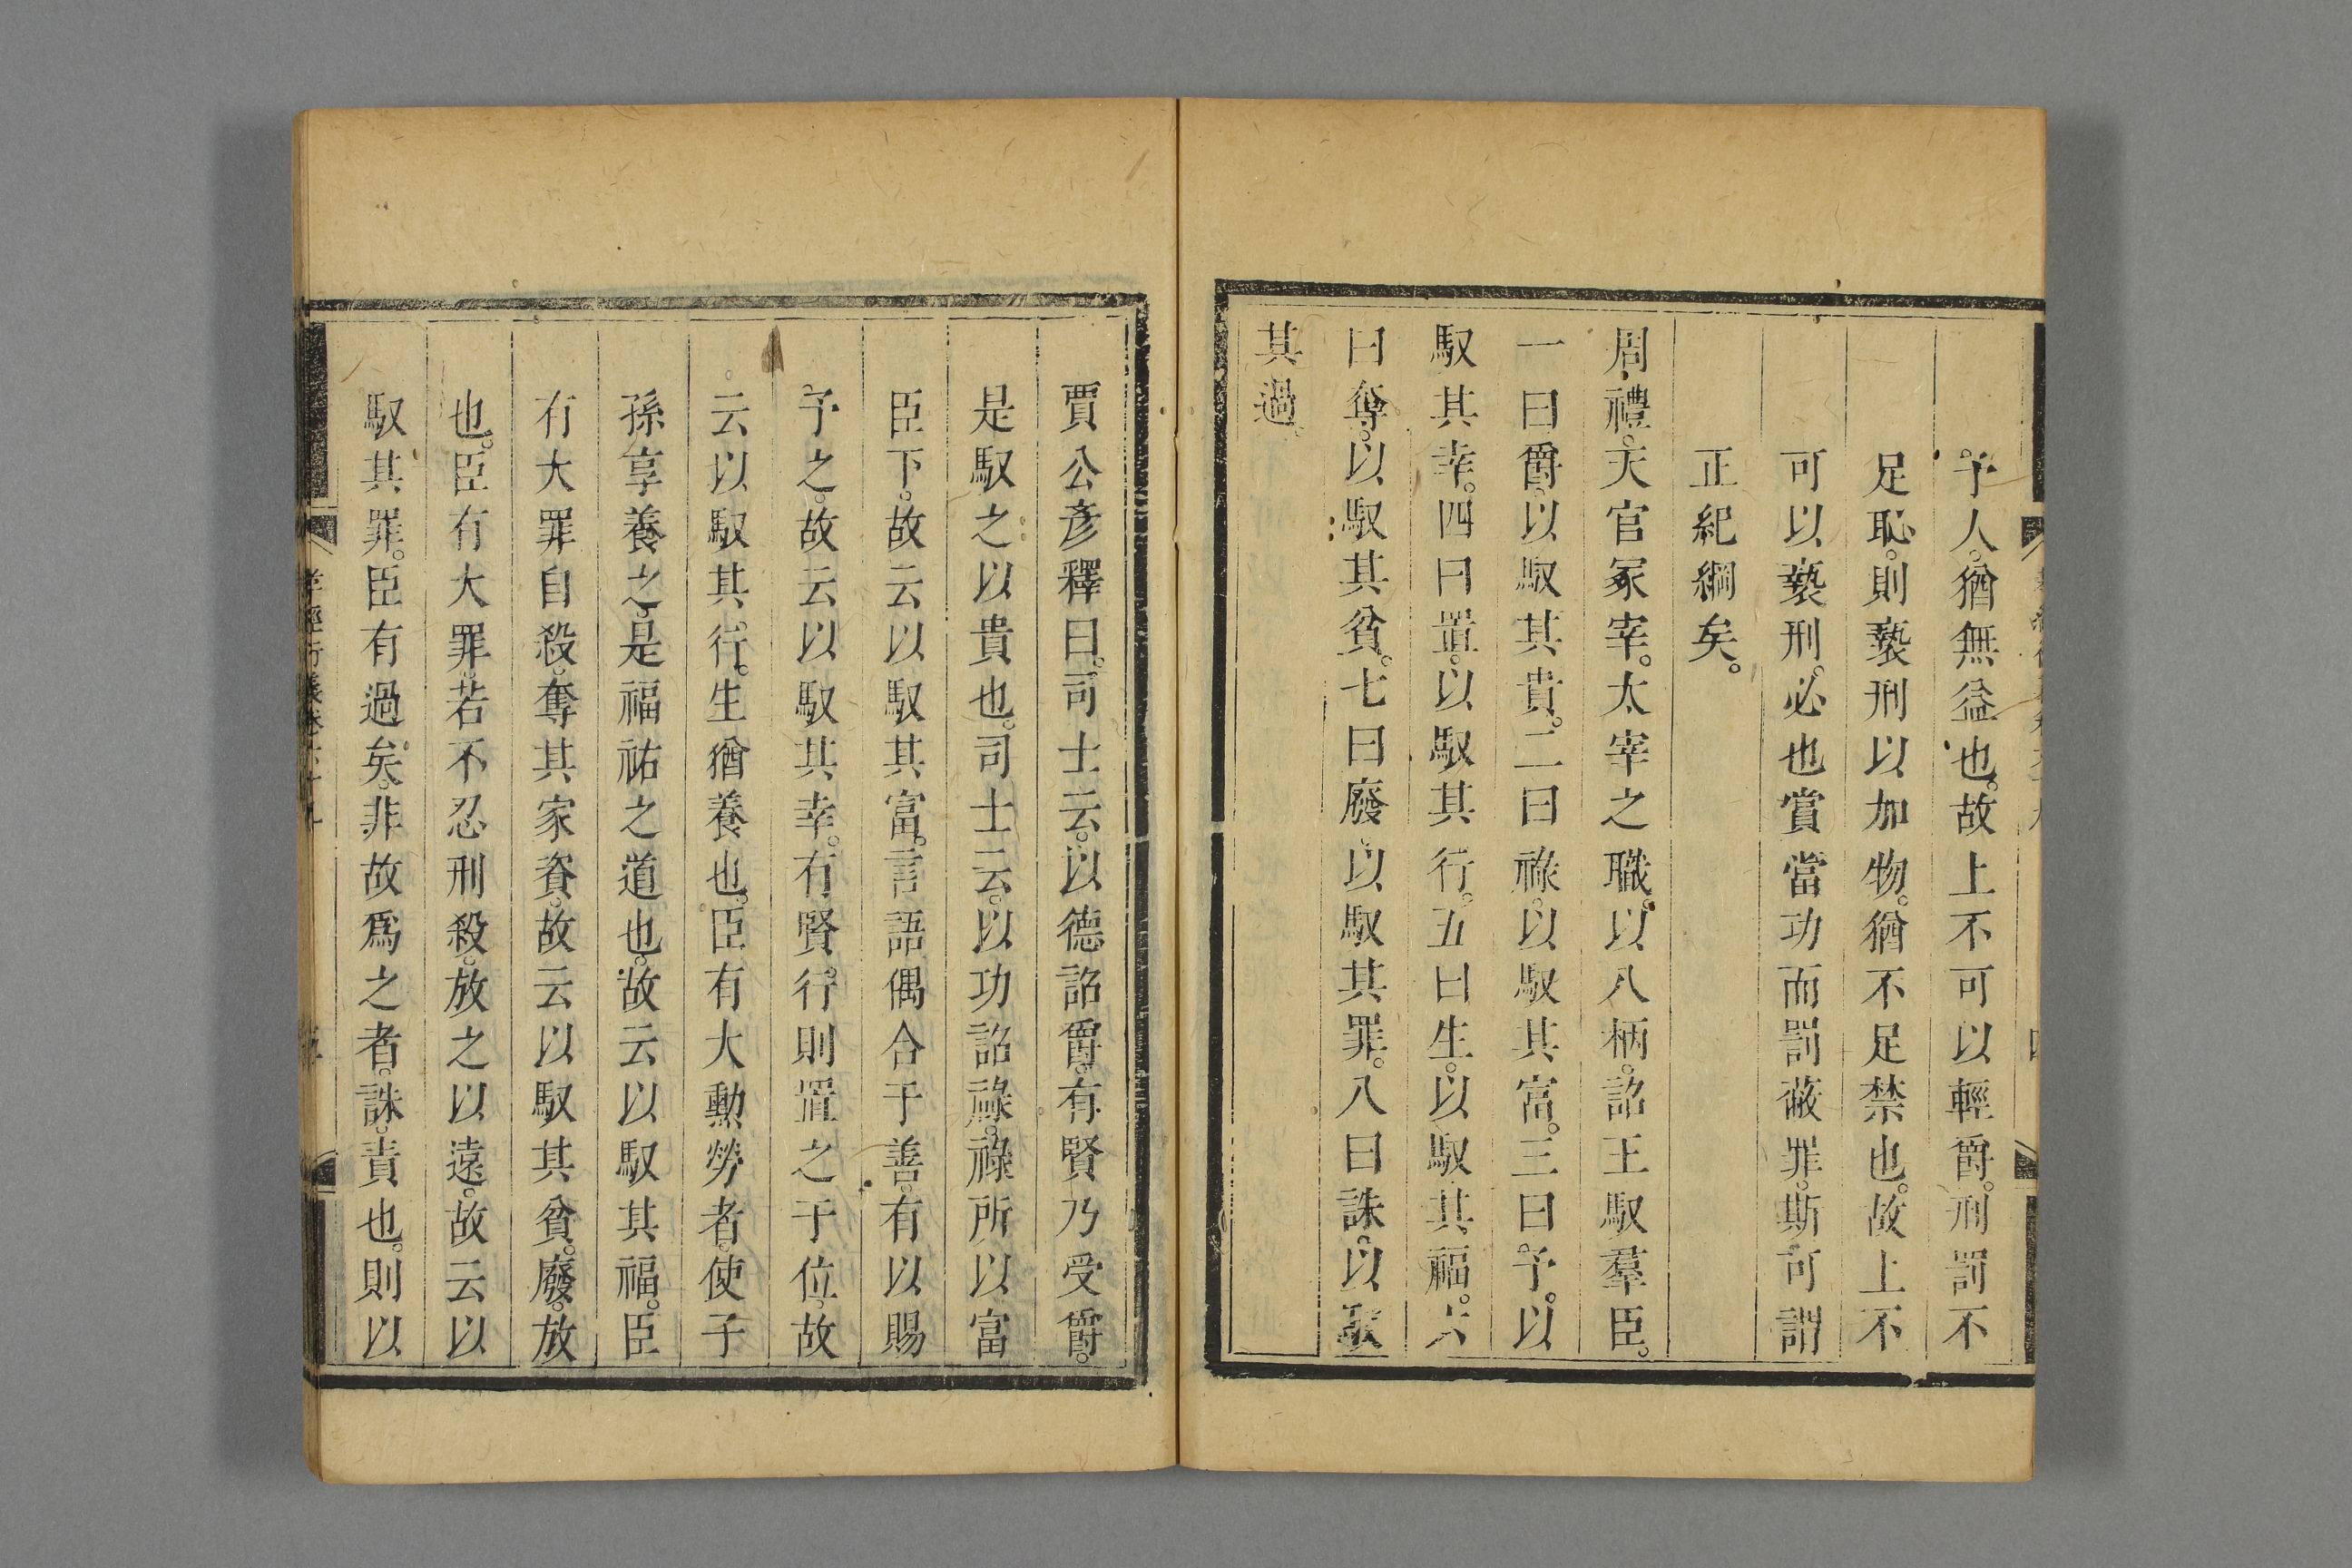 予人。猶無益也。故上不可以輕爵。刑罰不
足恥。則褻刑以加物。猶不足禁也。故上不
可以褻刑。必也賞當功而罰蔽罪。斯可謂
正紀綱矣。
周禮。天官冢宰。太宰之職。以八柄。詔王馭羣臣。
一曰爵。以馭其貴。二曰祿。以馭其富。三曰予。以
馭其幸。四曰置。以馭其行。五曰生。以馭其福。六
曰奪。以馭其貧。七曰廢。以馭其罪。八曰誅。以馭
其過。
賈公彥釋曰。司士云。以德詔爵。有賢乃受爵。
是馭之以貴也。司士云。以功詔祿。祿所以富
臣下。故云以馭其富。言語偶合于善。有以賜
予之。故云以馭其幸。有賢行。則置之于位。故
云以馭其行。生猶養也。臣有大勲勞者。使子
孫享養之。是福祐之道也。故云以馭其福。臣
有大罪自殺。奪其家資。故云以馭其貧。廢。放
也。臣有大罪。若不忍刑殺。放之以遠。故云以
馭其罪。臣有過矣。非故爲之者。誅。責也。則以
孝經衍義卷六十九